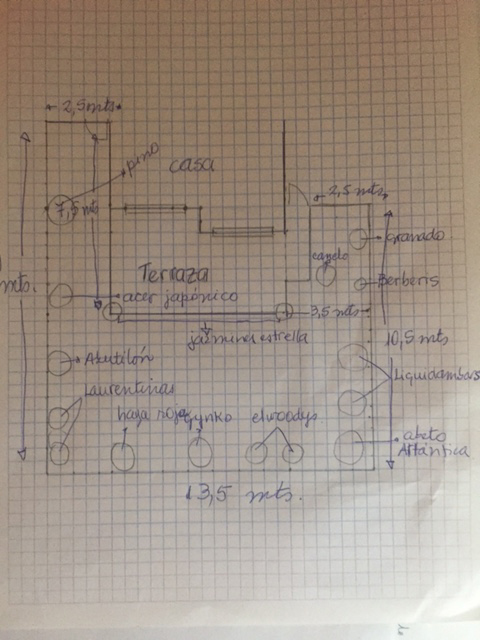 2,5 mts
pino
casa
7,5 mts
2,5 mts
granado
canelo
Berberis
mts.
Terraza
acer japónico
3,5 mts
jasmines estrella
10,5 mts
Abutilón
Liquidambars
Laurentinas
haya roja
Gynko
elwoodys
abeto
Atlántica
13,5 mts.